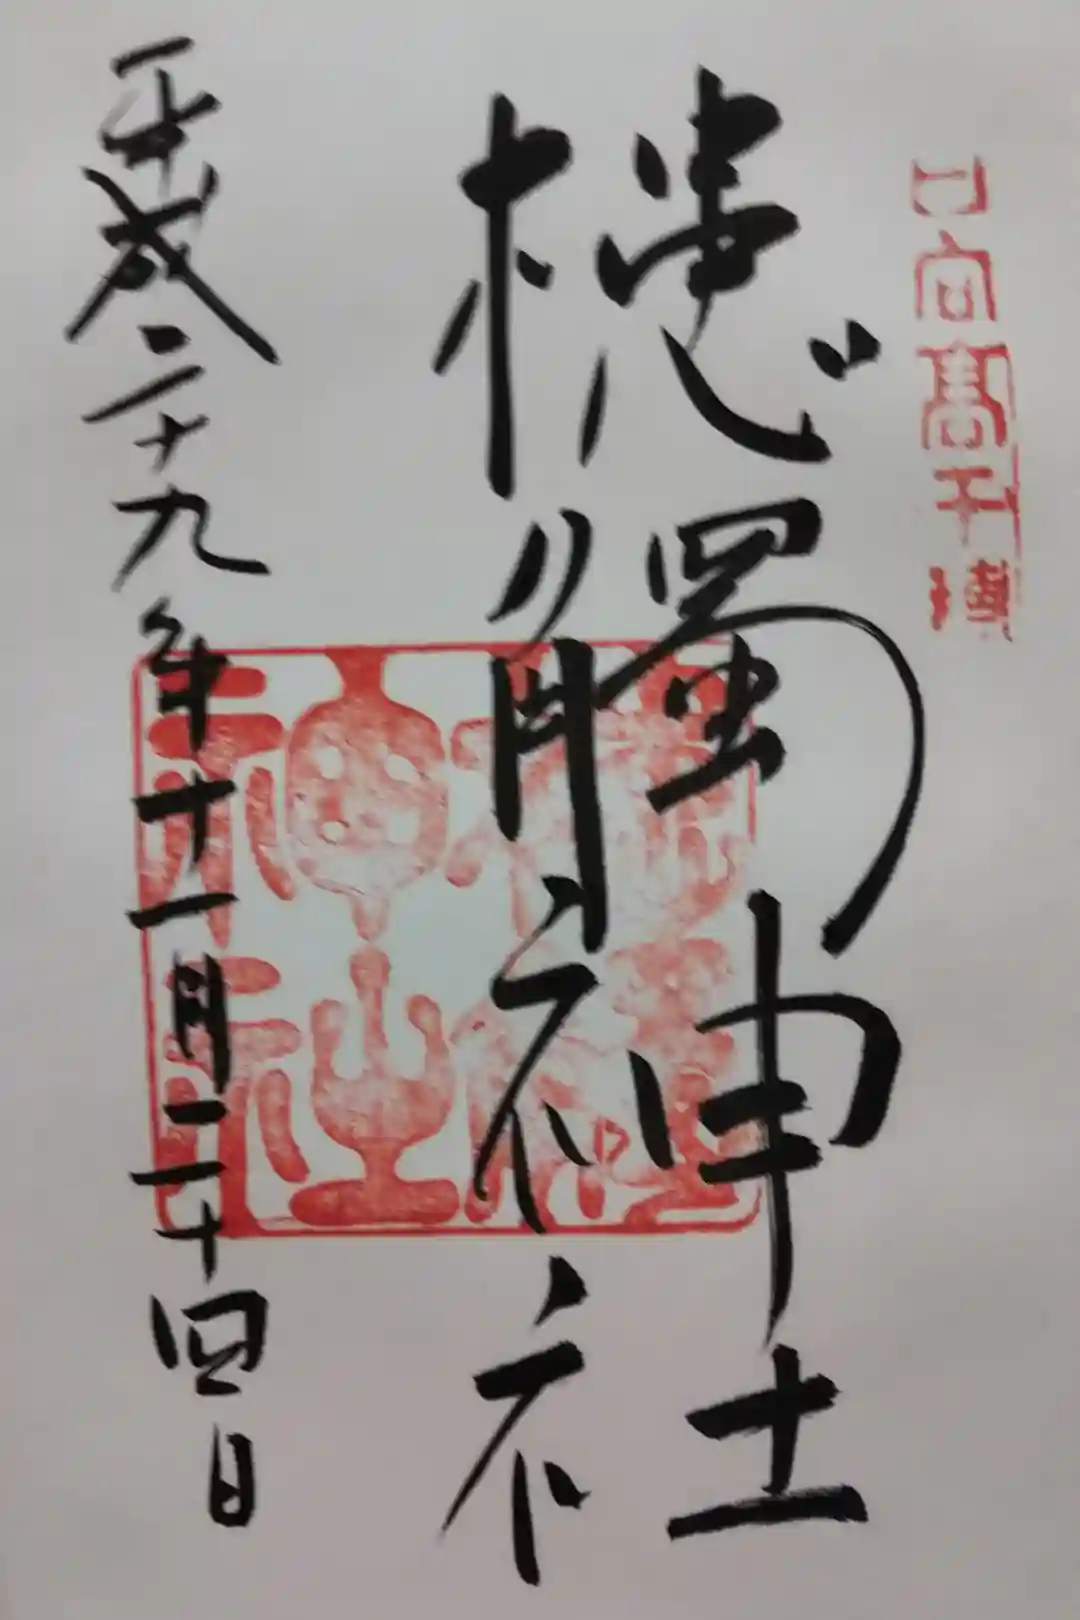 日向高千穂
槵觸神社
平成二十九年十一月二十四日
槵觸神社